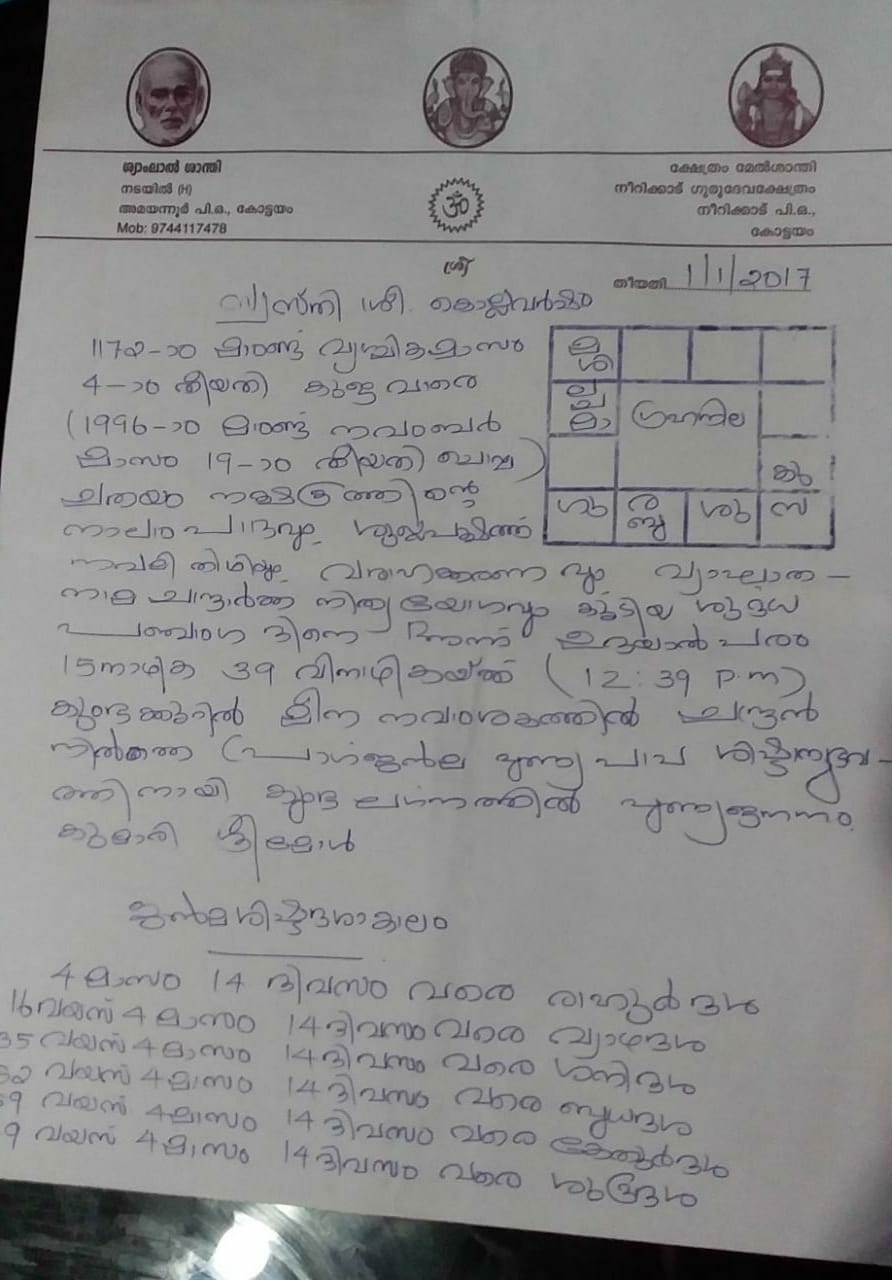 ശ്യാംലാൽ ശാന്തി
നടയിൽ (H)
അമയന്നൂർ പി.ഒ., കോട്ടയം
Mob: 9744117478
ക്ഷേത്രം മേൽശാന്തി
നീറിക്കാട് ഗുരുദേവക്ഷേത്രം
നീറിക്കാട് പി.ഒ.,
കോട്ടയം
ഓം
ശ്രീ
തീയതി 1/1/2017
സ്വസ്തി ശ്രീ കൊല്ലവർഷം
1172-ാം മാണ്ട് വൃശ്ചികമാസം
4-ാം തീയതി കുജവാരെ
(1996-ാം മാണ്ട് നവംബർ
മാസം 19-ാം തീയതി ചൊവ്വ)
ചതയം നക്ഷത്രത്തിന്റെ
നാലാം പാദവും ശുക്ലപക്ഷത്ത്
നവമി തിഥിയും വരാഹകരണവും വ്യാഘാത-
നാമ ചന്ദ്രാർക്ക നിത്യയോഗവും കൂടിയ ശുഭ
പഞ്ചാംഗ ദിനെ അന്ന് ഉദയാൽപരം
15 നാഴിക 39 വിനാഴികയ്ക്ക് (12:39 P.m)
കുംഭക്കൂറിൽ മീന നവാംശകത്തിൽ ചന്ദ്രൻ
നിൽക്കെ പ്രാഗ്ജൻമ പുണ്യ പാപ ശിഷ്ടാനുഭവ-
ത്തിനായി കുംഭ ലഗ്നത്തിൽ പുണ്യജനനം
കുമാരി ശ്രീമോൾ
മ
ശി
ല
ച
മാ
ഗ്രഹനില
കു
ഗു
ര
ബു
ശു
സ
ജൻമശിഷ്ടദശാകാലം
4 മാസം 14 ദിവസം വരെ രാഹുർദശ
16 വയസ് 4 മാസം 14 ദിവസം വരെ വ്യാഴദശ
35 വയസ് 4 മാസം 14 ദിവസം വരെ ശനിദശ
വയസ് 4 മാസം 14 ദിവസം വരെ ബുധദശ
വയസ് 4 മാസം 14 ദിവസം വരെ കേതുർദശ
വയസ് 4 മാസം 14 ദിവസം വരെ ശുക്രദശ